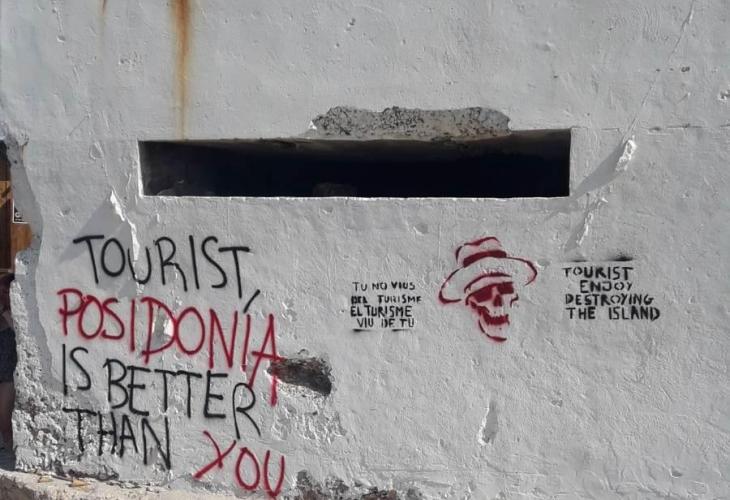 TOURIST,
POSIDONIA
IS BETTER
THAN YOU
TU NO VIUS
DEL TURISME
EL TURISME
VIU DE TU
TOURIST
ENJOY
DESTROYING
THE ISLAND